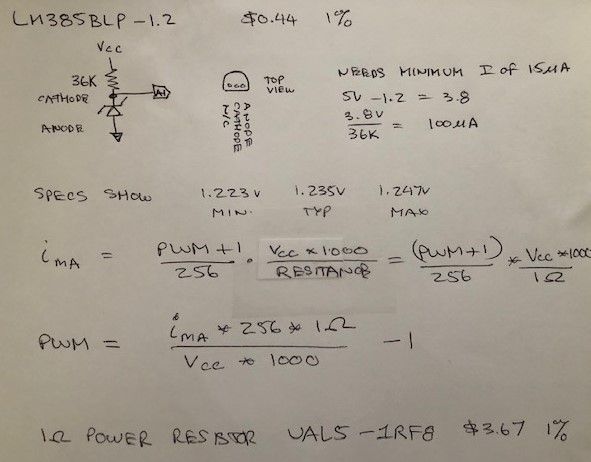 LM385BLP-1.2 $0.44 1%
Vcc
36K
CATHODE
A1
ANODE
TOP
VIEW
ANODE
CATHODE
N/C
NEEDS MINIMUM I of 15MA
5V - 1.2 = 3.8
3.8V / 36K = 100MA
SPECS SHOW 1.223V 1.235V 1.247V
MIN. TYP MAX
iMA = PWM+1 / 256 · Vcc * 1000 / RESITANCE = (PWM+1) / 256 * Vcc *1000 / 1Ω
PWM = iMA * 256 * 1Ω / Vcc * 1000 - 1
1Ω POWER RESISTOR UAL5-1RF8 $3.67 1%